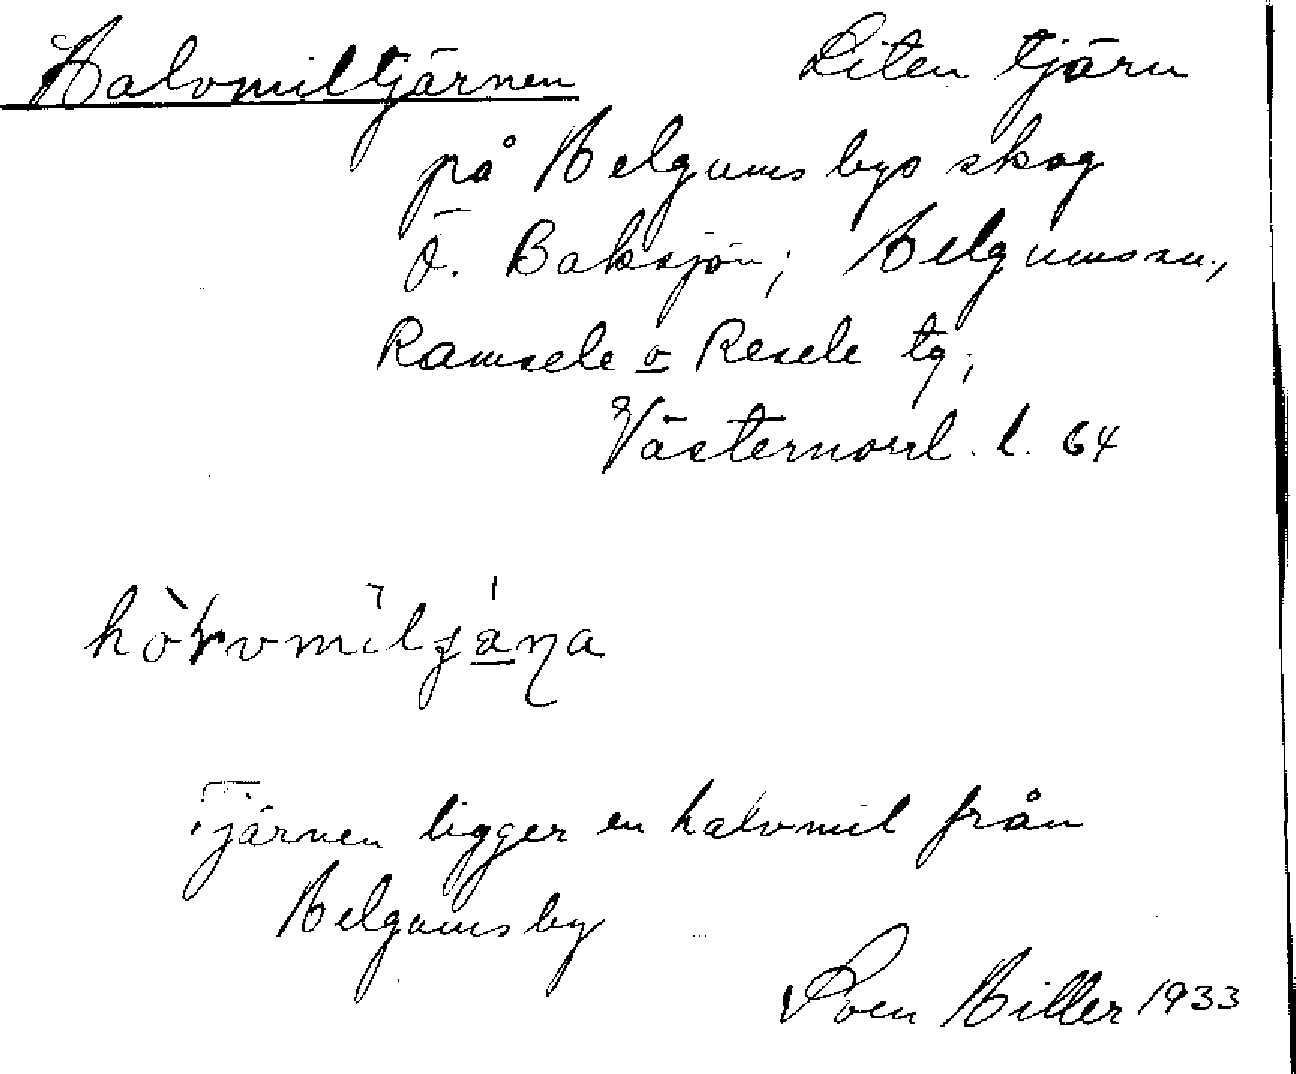 Halvmiltjärnen Liten tjärn
på Helgums bys skog
Ö. Baksjön; Helgums sn.,
Ramsele o Resele tg;
Västernorrl. l. 64
Tjärnen ligger en halvmil från
Helgums by
Sven Hiller 1933